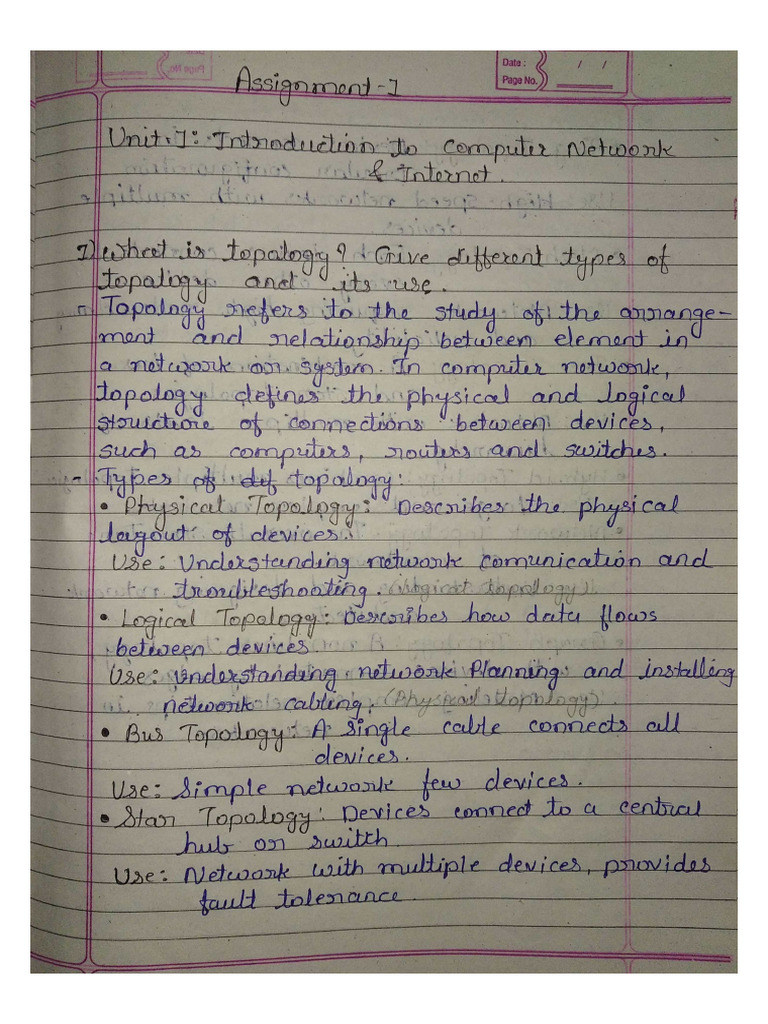 Date : / /
Page No.
Assignment-1
Unit.1: Introduction to computer Network
& Internet.
1) What is topalogy? Give different types of
topalogy and its use.
Topology refers to the study of the arrange-
ment and relationship between element in
a network or system. In computer network,
topology defines the physical and logical
structure of connections between devices,
such as computers, routers and switches.
- Types of def topalogy:
• Physical Topalogy: Describes the physical
layout of devices.
Use: Understanding network comunication and
troubleshooting. (logical topalogy).
• Logical Topalogy: Describes how data flows
between devices
Use: Understanding network Planning and installing
network cabling. (Physical topalogy).
• Bus Topalogy: A single cable connects all
devices.
Use: Simple network few devices.
• Star Topalogy: Devices connect to a central
hub or switch.
Use: Network with multiple devices, provides
fault tolerance.